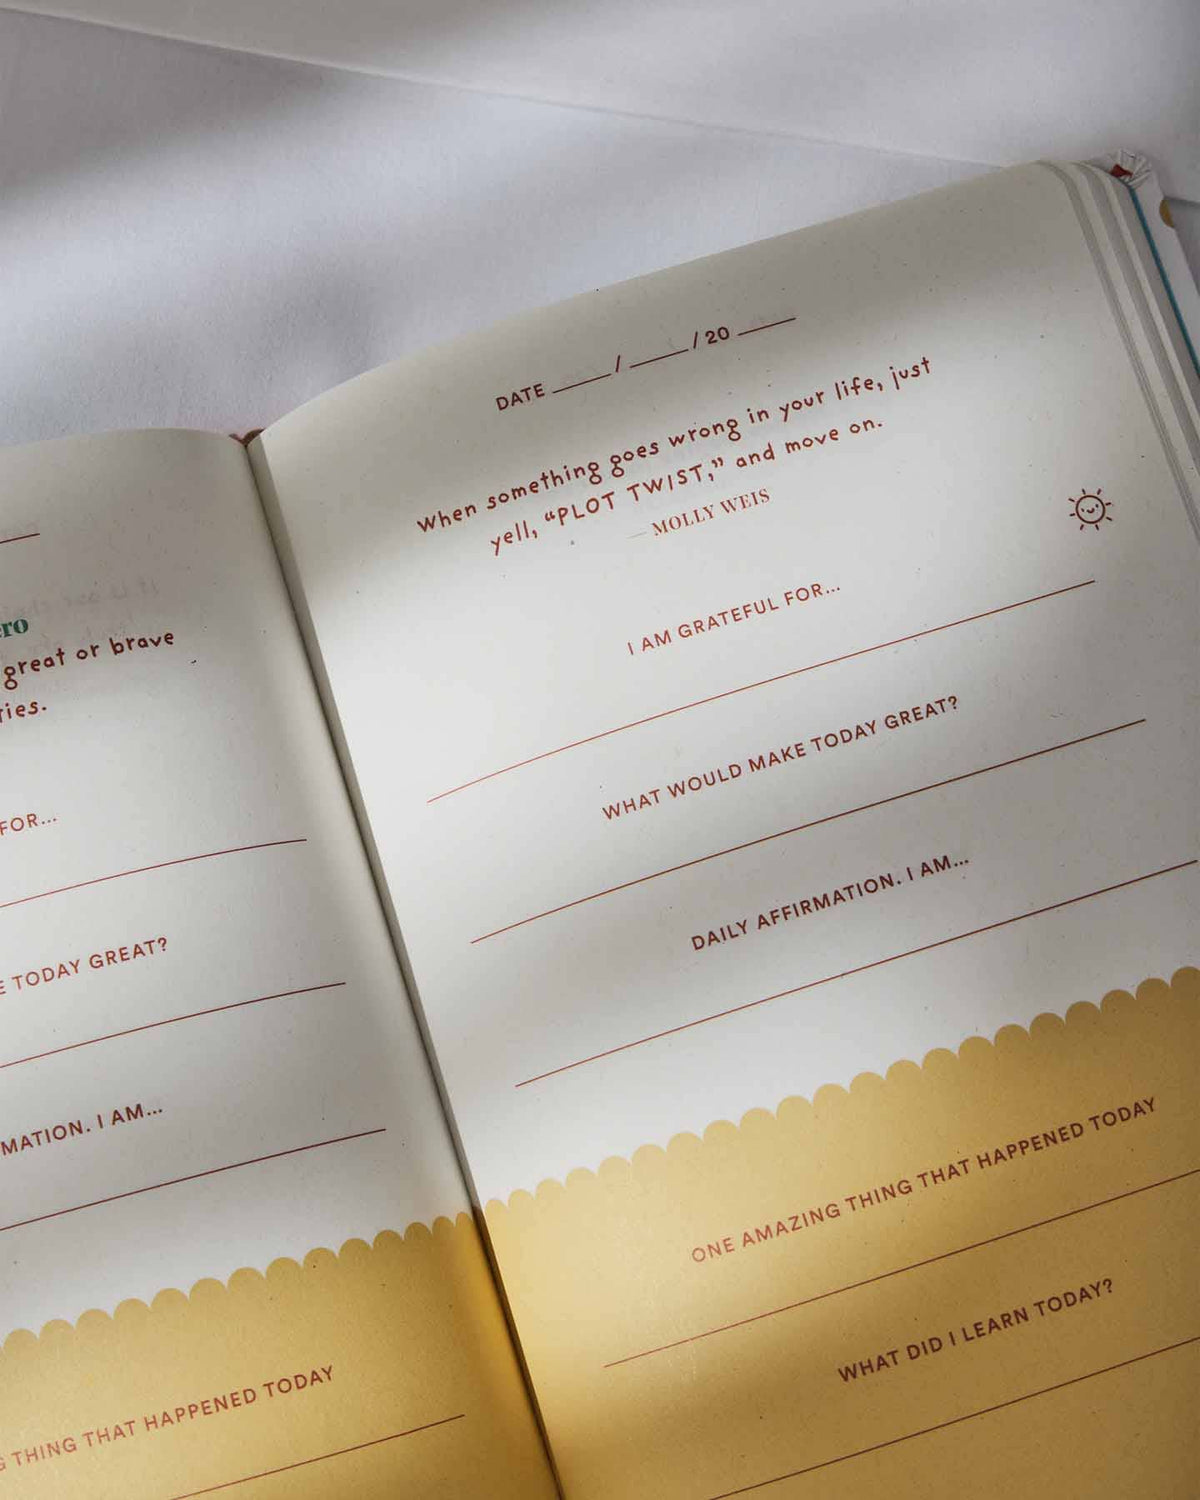 ro
great or brave
ries.
FOR...
TODAY GREAT?
MATION. I AM...
THING THAT HAPPENED TODAY
DATE ____ / ____ / 20 ____
When something goes wrong in your life, just
yell, “PLOT TWIST,” and move on.
— MOLLY WEIS
I AM GRATEFUL FOR...
WHAT WOULD MAKE TODAY GREAT?
DAILY AFFIRMATION. I AM...
ONE AMAZING THING THAT HAPPENED TODAY
WHAT DID I LEARN TODAY?